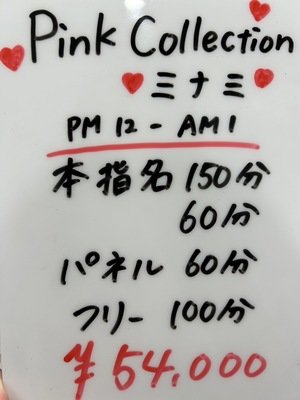 Pink Collection
ミナミ
PM 12 - AM 1
本指名 150分
60分
パネル 60分
フリー 100分
¥54,000